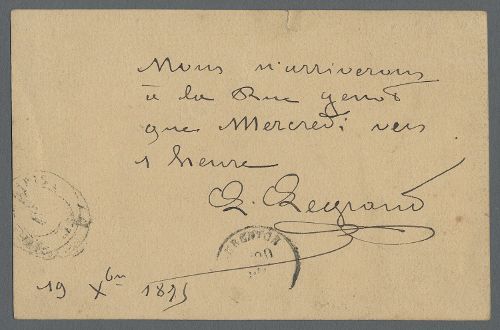 Nous n'arriverons
à la Rue
que Mercredi vers
1 heure
Legrand
19 Xbre 1875